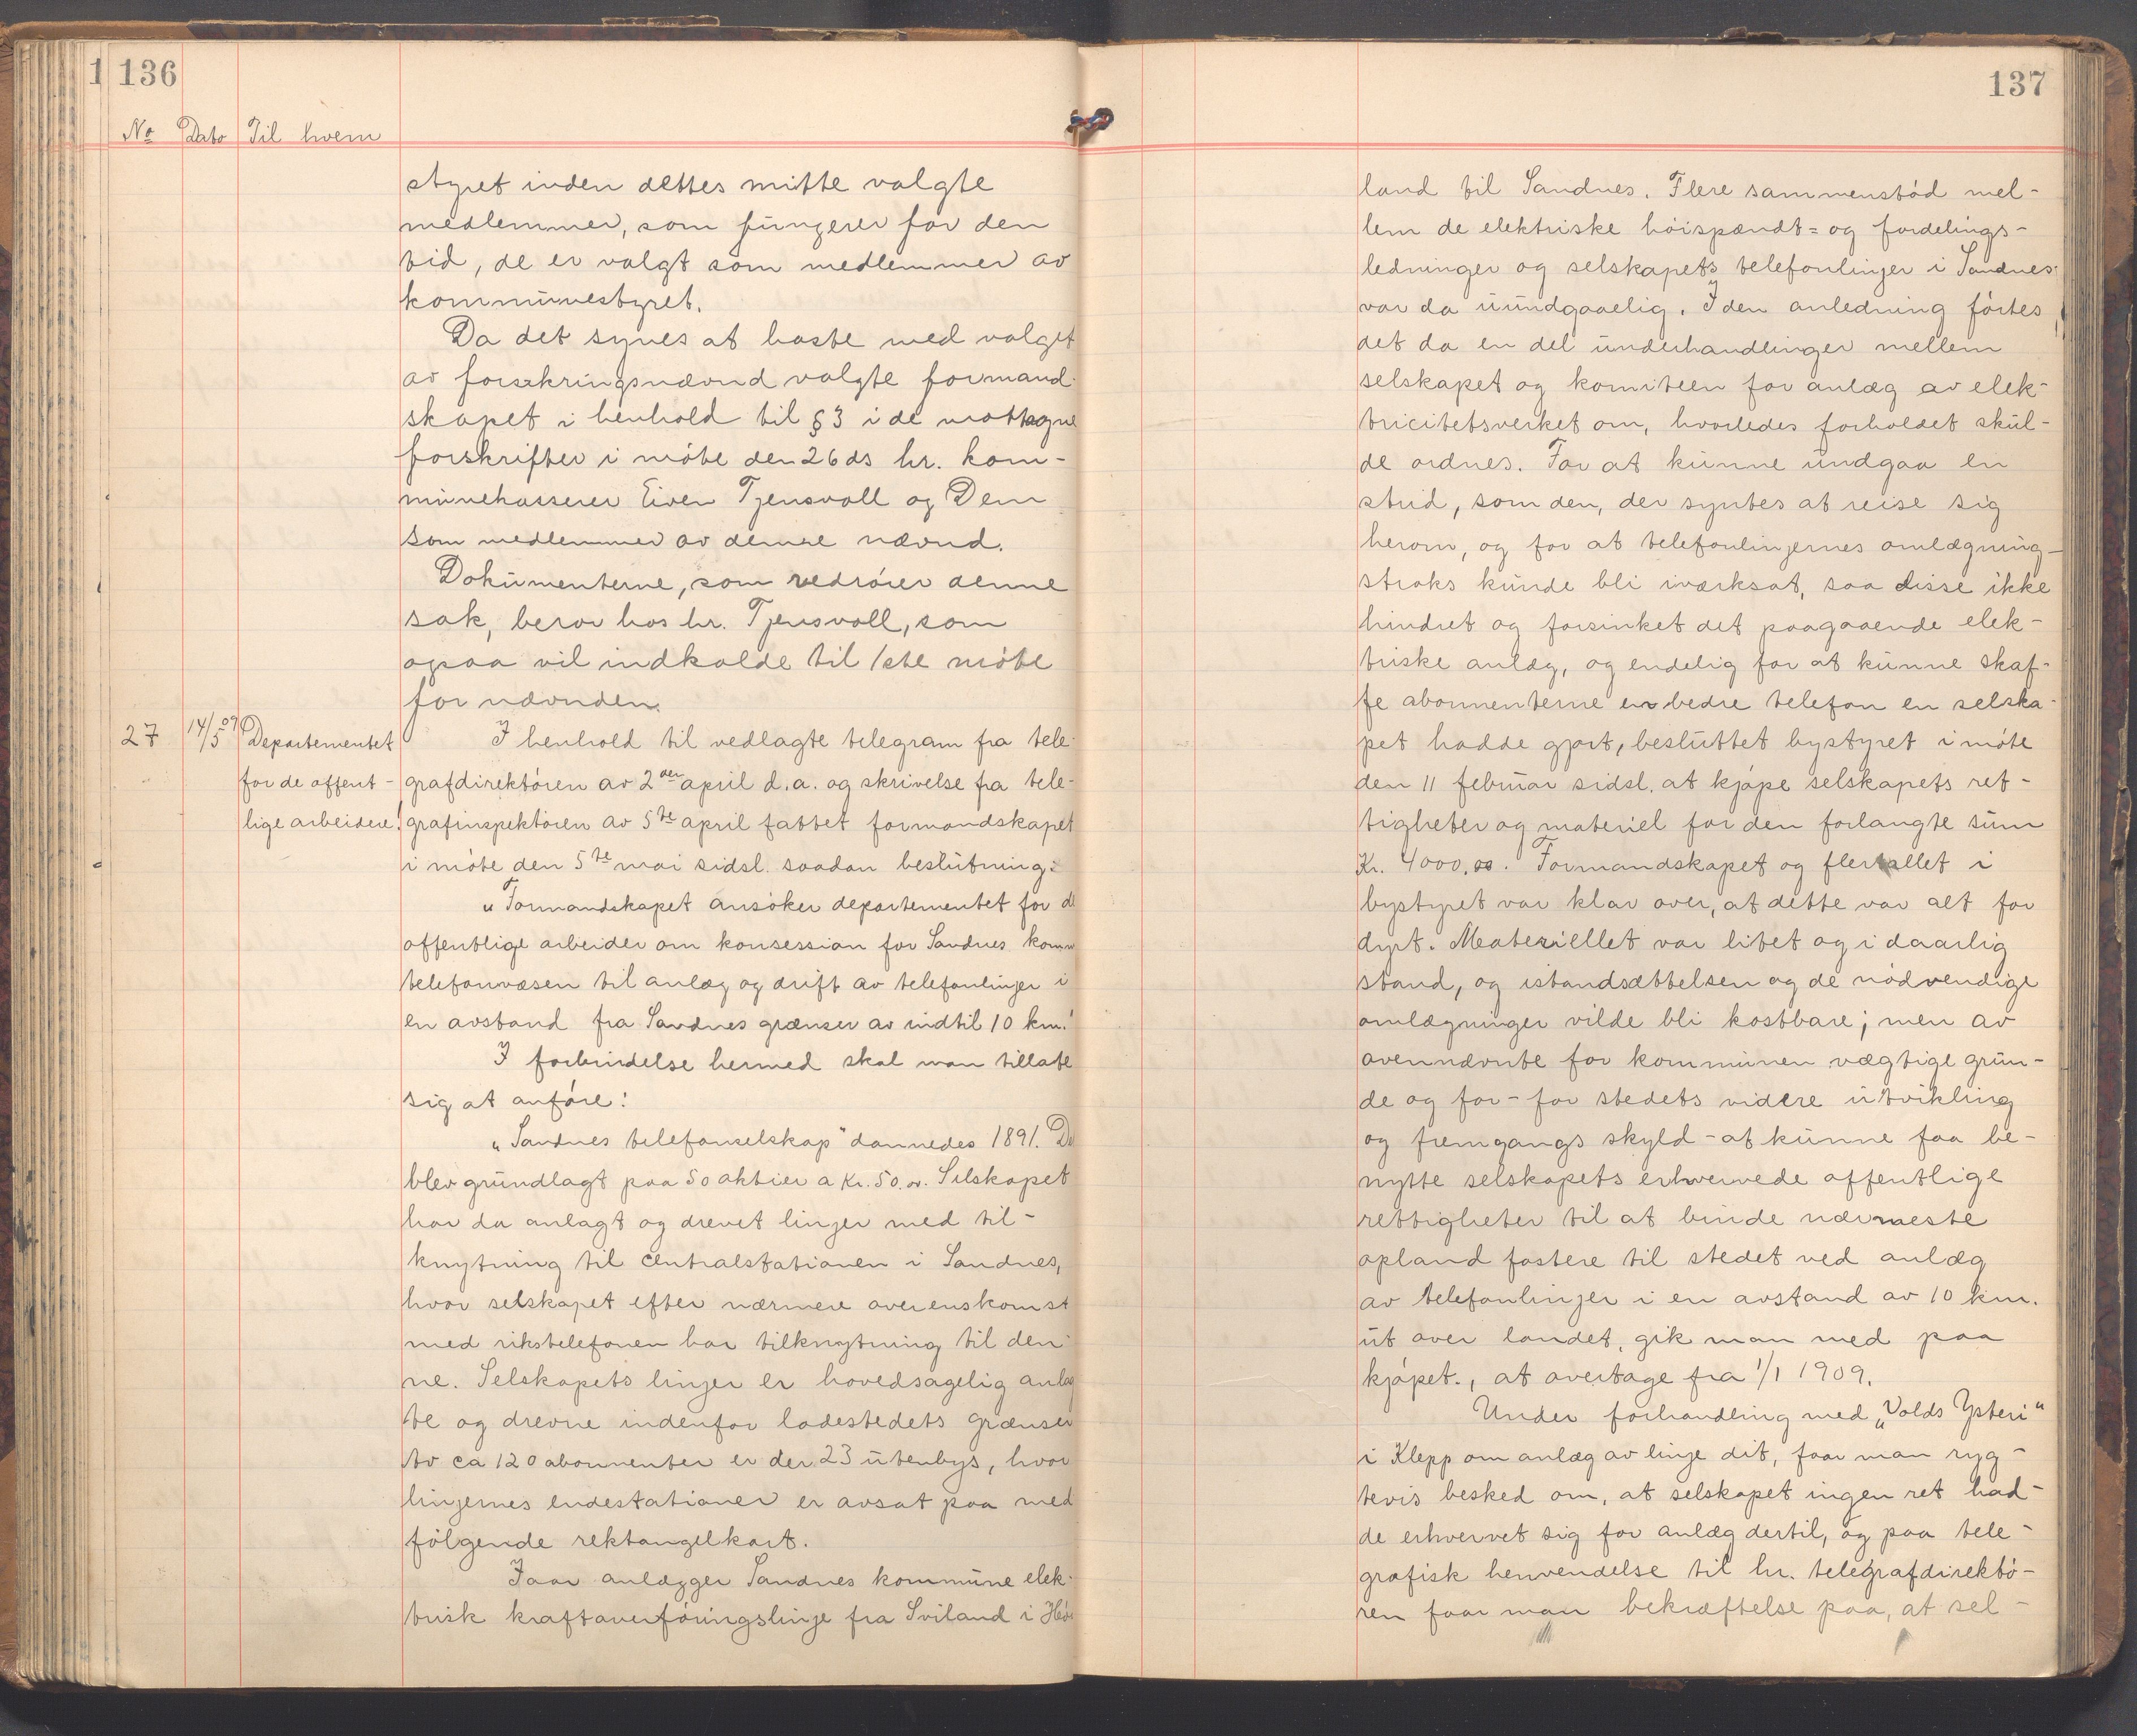 1 136
No Dato Til hvem
styret inden dettes mitte valgte
medlemmer, som fungerer for den
tid, de er valgt som medlemmer av
kommunestyret.
Da det synes at haste med valget
av forsikringsnævnd valgte formand-
skapet i henhold til § 3 i de mottagne
forskrifter i møte den 26 ds hr. kom-
munekasserer Eiven Tjensvoll og Dem
som medlemmer av denne nævnd.
Dokumenterne, som vedrører denne
sak, beror hos hr. Tjensvoll, som
ogsaa vil indkalde til 1ste møte
for nævnden.
27 14/5 09 Departementet
for de offent-
lige arbeider!
I henhold til vedlagte telegram fra tele-
grafdirektøren av 2den april d.a. og skrivelse fra tele-
grafinspektøren av 5te april fattet formandskapet
i møte den 5te mai sidsl. saadan beslutning:
"Formandskapet ansøker departementet for de
offentlige arbeider om konsession for Sandnes komm
telefonvæsen til anlæg og drift av telefonlinjer i
en avstand fra Sandnes grænser av indtil 10 km."
I forbindelse hermed skal man tillate
sig at anføre:
"Sandnes telefonselskap" dannedes 1891. De
blev grundlagt paa 50 aktier a Kr. 50.00. Selskapet
har da anlagt og drevet linjer med til-
knytning til centralstationen i Sandnes,
hvor selskapet efter nærmere overenskomst
med rikstelefonen har tilknytning til den-
ne. Selskapets linjer er hovedsagelig anlag
te og drevne indenfor ladestedets grænser
Av ca 120 abonnenter er der 23 utenbys, hvor
linjernes endestationer er avsat paa med
følgende rektangelkart.
Iaar anlægger Sandnes kommune elek-
trisk kraftoverføringslinje fra Sviland i Høi
137
land til Sandnes. Flere sammenstød mel-
lem de elektriske høispændt= og fordelings-
ledninger og selskapets telefonlinjer i Sandnes
var da uundgaaelig. I den anledning førtes
det da en del underhandlinger mellem
selskapet og komiteen for anlæg av elek-
tricitetsverket om, hvorledes forholdet skul-
de ordnes. For at kunne undgaa en
strid, som den, der syntes at reise sig
herom, og for at telefonlinjernes omlægning
straks kunde bli iverksat, saa disse ikke
hindret og forsinket det paagaaende elek-
triske anlæg, og endelig for at kunne skaf-
fe abonnenterne en bedre telefon en selska-
pet hadde gjort, besluttet bystyret i møte
den 11 februar sidsl. at kjøpe selskapets ret-
tigheter og materiel for den forlangte sum
Kr. 4000.00. Formandskapet og flertallet i
bystyret var klar over, at dette var alt for
dyrt. Materiellet var litet og i daarlig
stand, og istandsættelsen og de nødvendige
omlægninger vilde bli kostbare; men av
ovennævnte for kommunen vægtige grun-
de og for - for stedets videre utvikling
og fremgangs skyld - at kunne faa be-
nytte selskapets erhvervede offentlige
rettigheter til at binde nærmeste
opland fastere til stedet ved anlæg
av telefonlinjer i en avstand av 10 km.
ut over landet, gik man med paa
kjøpet., at overtage fra 1/1 1909.
Under forhandling med "Volds Ysteri"
i Klepp om anlæg av linje dit, faar man ryg-
tevis besked om, at selskapet ingen ret had-
de erhvervet sig for anlæg dertil, og paa tele-
grafisk henvendelse til hr. telegrafdirektø-
ren faar man bekræftelse paa, at sel-